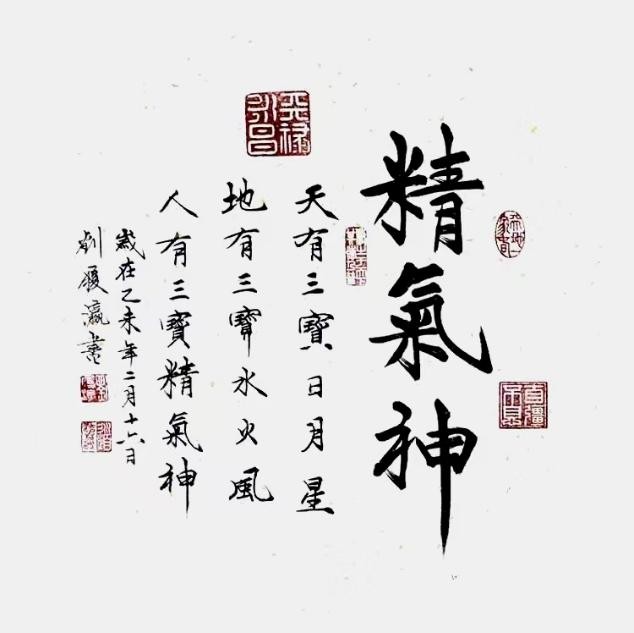 精氣神
天有三寶日月星
地有三寶水火風
人有三寶精氣神
歲在乙未年二月十六日
劉瀛書
天禄永昌